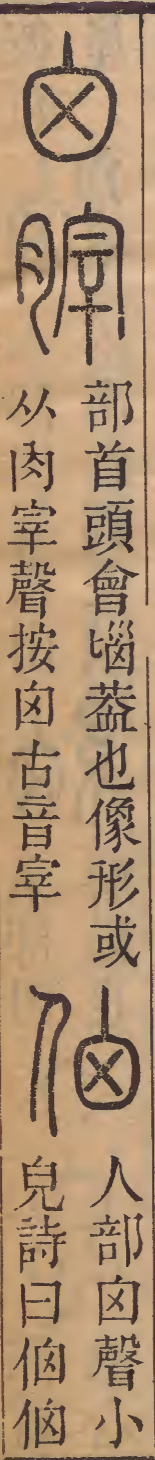 囟
𦞤
部首頭會匘葢也像形或
从肉宰聲按囟古音宰
⿰亻囟
人部囟聲小
皃詩曰⿰亻囟⿰亻囟